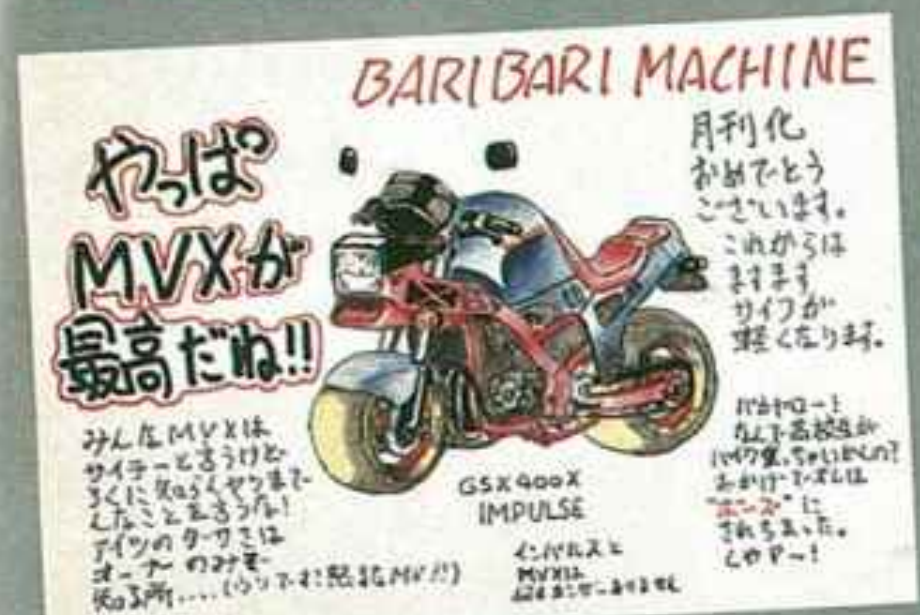 BARIBARI MACHINE
やっぱ
MVXが
最高だね!!
月刊化
おめでとう
ございます。
これからは
ますます
サイフが
軽くなります。
みんなMVXは
サイテーと言うけど
ろくに知らんヤツまで
んなことを言うな!
アイツの
オーナーのみぞ
知る所....(ウリです MV!!)
GSX400X
IMPULSE
インパルスと
MVXは
ありません
バカヤロー!
なんで高校生が
バイク乗っちゃいかんの?
おかげでオレは
"ボーズ"に
されちまった。
くやP〜!